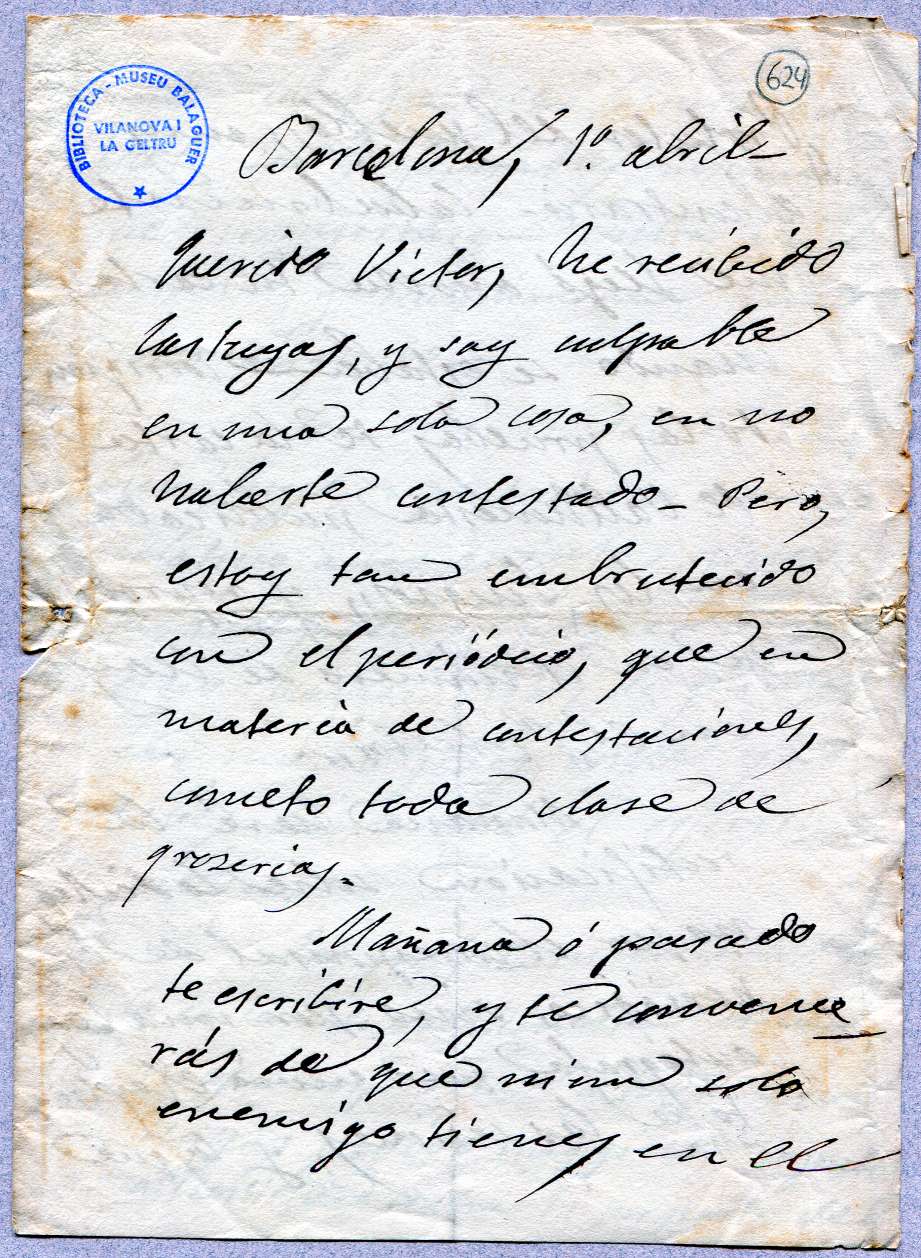 624
BIBLIOTECA - MUSEU BALAGUER
VILANOVA I
LA GELTRU
Barcelona, 1º. abril-
Querido Victor, he recibido
las tuyas, y soy culpable
en una sola cosa, en no
haberte contestado - Pero,
estoy tan embrutecido
con el periódico, que en
materia de contestaciones,
cometo toda clase de
groserias.
Mañana ó pasado
te escribiré, y te convence
rás de que ni un solo
enemigo tienes en el